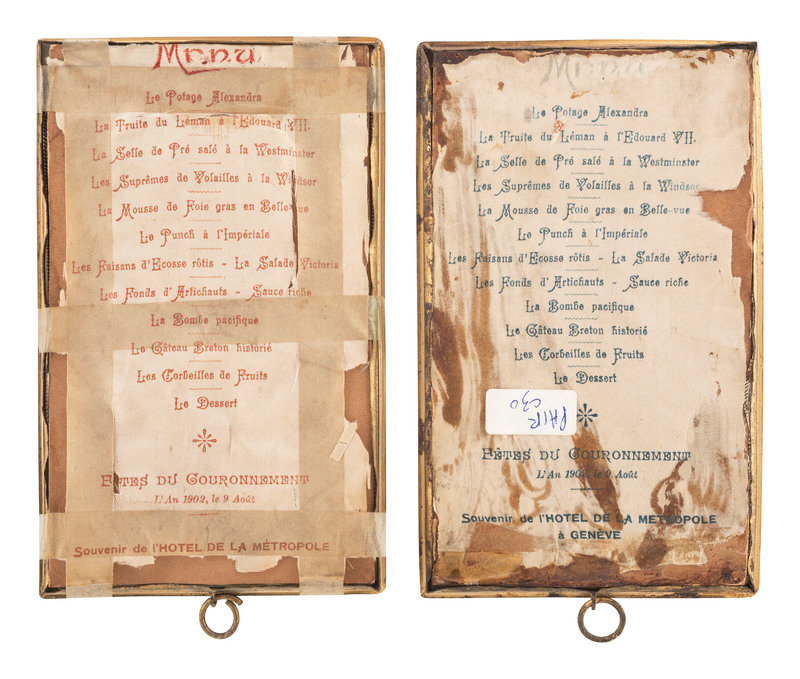 Menu
Le Potage Alexandra
La Truite du Léman à l'Edouard VII.
La Selle de Pré salé à la Westminster
Les Suprêmes de Volailles à la Windsor
La Mousse de Foie gras en Belle-vue
Le Punch à l'Impériale
Les Faisans d'Ecosse rôtis - La Salade Victoria
Les Fonds d'Artichauts - Sauce riche
La Bombe pacifique
Le Gâteau Breton historié
Les Corbeilles de Fruits
Le Dessert
FÊTES DU COURONNEMENT
L'An 1902, le 9 Août
Souvenir de l'HOTEL DE LA MÉTROPOLE
Menu
Le Potage Alexandra
La Truite du Léman à l'Edouard VII.
La Selle de Pré salé à la Westminster
Les Suprêmes de Volailles à la Windsor
La Mousse de Foie gras en Belle-vue
Le Punch à l'Impériale
Les Faisans d'Ecosse rôtis - La Salade Victoria
Les Fonds d'Artichauts - Sauce riche
La Bombe pacifique
Le Gâteau Breton historié
Les Corbeilles de Fruits
Le Dessert
PAIR
FÊTES DU COURONNEMENT
L'An 1902, le 9 Août
Souvenir de l'HOTEL DE LA MÉTROPOLE
à GENÈVE